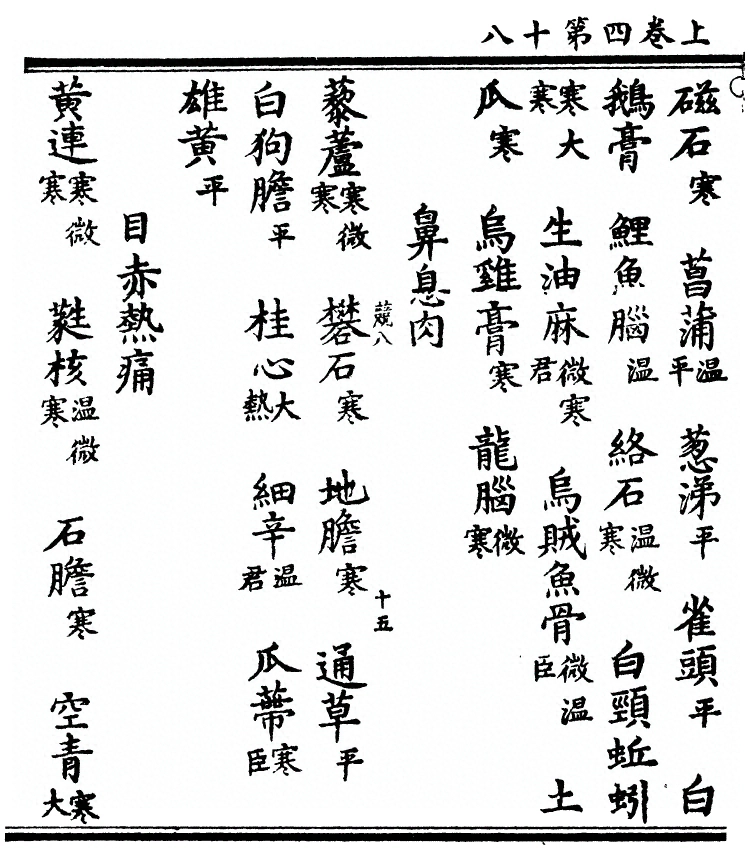 上卷四第十八
磁石寒 菖蒲温平 葱涕平 雀頭平 白
鵝膏 鯉魚腦温 絡石温微寒 白頸蚯蚓
寒大寒 生油麻微寒君 烏賊魚骨微温臣 土
瓜寒 烏雞膏寒 龍腦微寒
鼻息肉
競八 十五
藜蘆寒微寒 礬石寒 地膽寒 通草平
白狗膽平 桂心大熱 細辛温君 瓜蔕寒臣
雄黃平
目赤熱痛
黃連寒微寒 蕤核温微寒 石膽寒 空青寒大